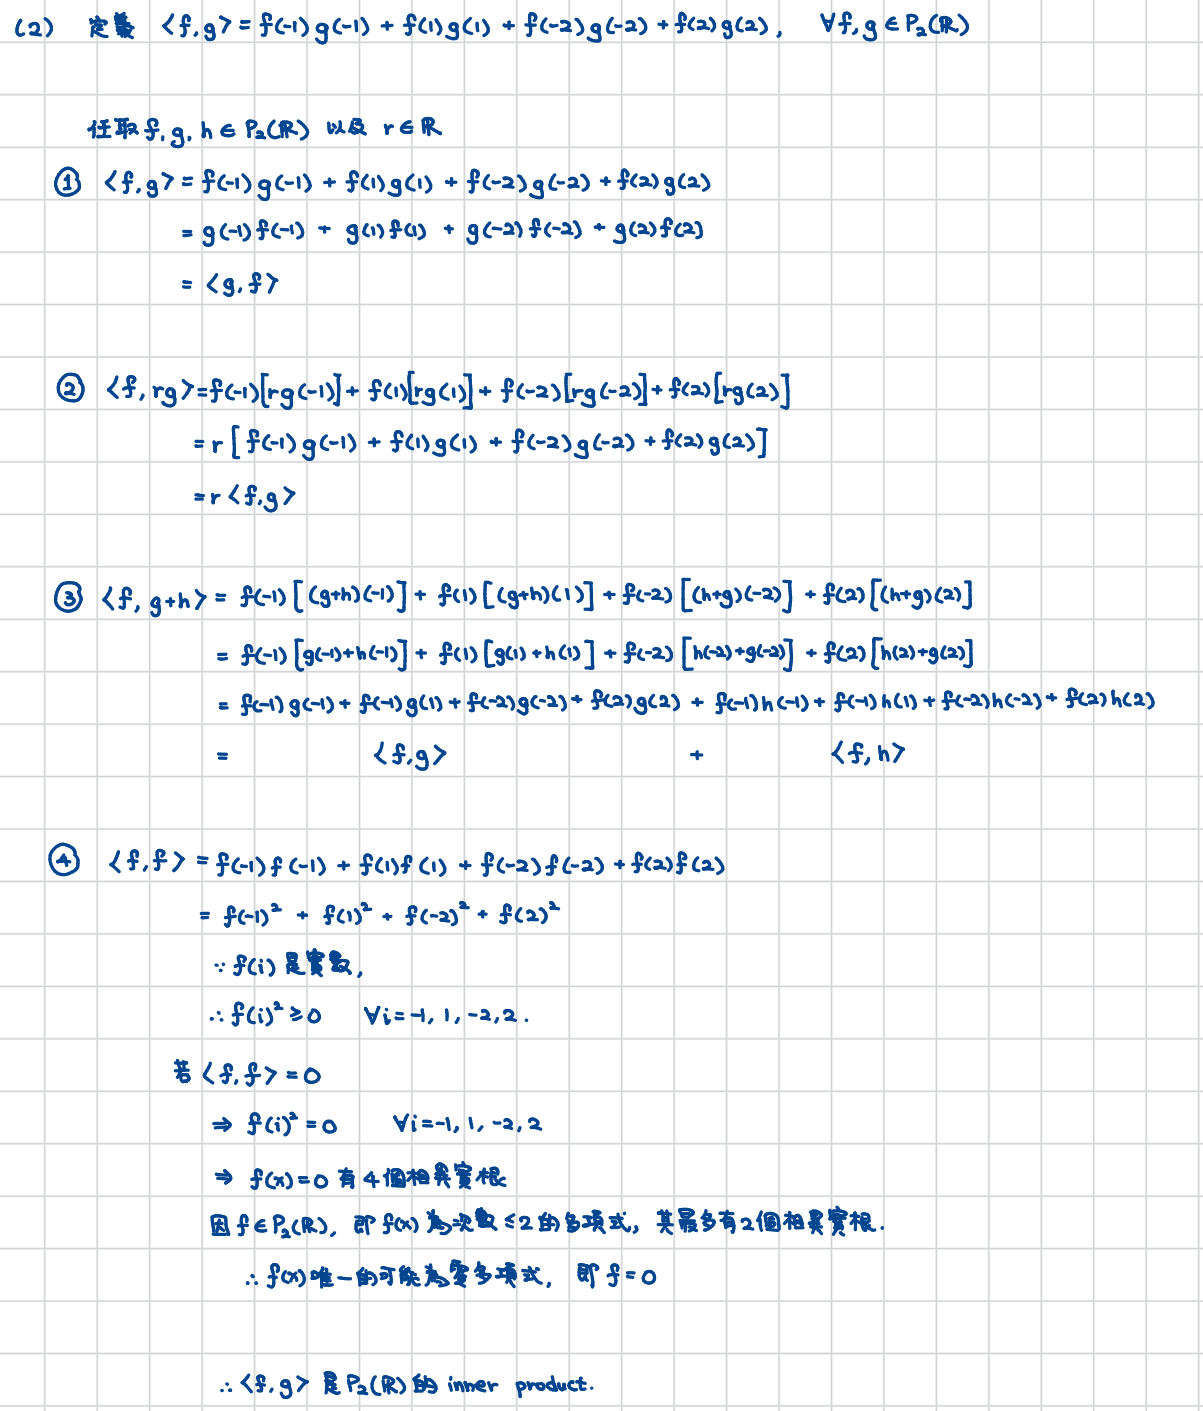 (2) 定義 <f,g> = f(-1)g(-1) + f(1)g(1) + f(-2)g(-2) + f(2)g(2), ∀f,g ∈ P₂(ℝ)
任取 f, g, h ∈ P₂(ℝ) 以及 r ∈ ℝ
① <f,g> = f(-1)g(-1) + f(1)g(1) + f(-2)g(-2) + f(2)g(2)
= g(-1)f(-1) + g(1)f(1) + g(-2)f(-2) + g(2)f(2)
= <g,f>
② <f,rg> = f(-1)[rg(-1)] + f(1)[rg(1)] + f(-2)[rg(-2)] + f(2)[rg(2)]
= r[f(-1)g(-1) + f(1)g(1) + f(-2)g(-2) + f(2)g(2)]
= r<f,g>
③ <f, g+h> = f(-1)[(g+h)(-1)] + f(1)[(g+h)(1)] + f(-2)[(h+g)(-2)] + f(2)[(h+g)(2)]
= f(-1)[g(-1)+h(-1)] + f(1)[g(1)+h(1)] + f(-2)[h(-2)+g(-2)] + f(2)[h(2)+g(2)]
= f(-1)g(-1) + f(-1)g(1) + f(-2)g(-2) + f(2)g(2) + f(-1)h(-1) + f(-1)h(1) + f(-2)h(-2) + f(2)h(2)
= <f,g> + <f,h>
④ <f,f> = f(-1)f(-1) + f(1)f(1) + f(-2)f(-2) + f(2)f(2)
= f(-1)² + f(1)² + f(-2)² + f(2)²
∵ f(i) 是實數,
∴ f(i)² ≥ 0 ∀i = -1, 1, -2, 2.
若 <f,f> = 0
⇒ f(i)² = 0 ∀i = -1, 1, -2, 2
⇒ f(x) = 0 有 4 個相異實根
因 f ∈ P₂(ℝ), 即 f(x) 為次數 ≤ 2 的多項式, 其最多有 2 個相異實根.
∴ f(x) 唯一的可能為零多項式, 即 f = 0
∴ <f,g> 是 P₂(ℝ) 的 inner product.